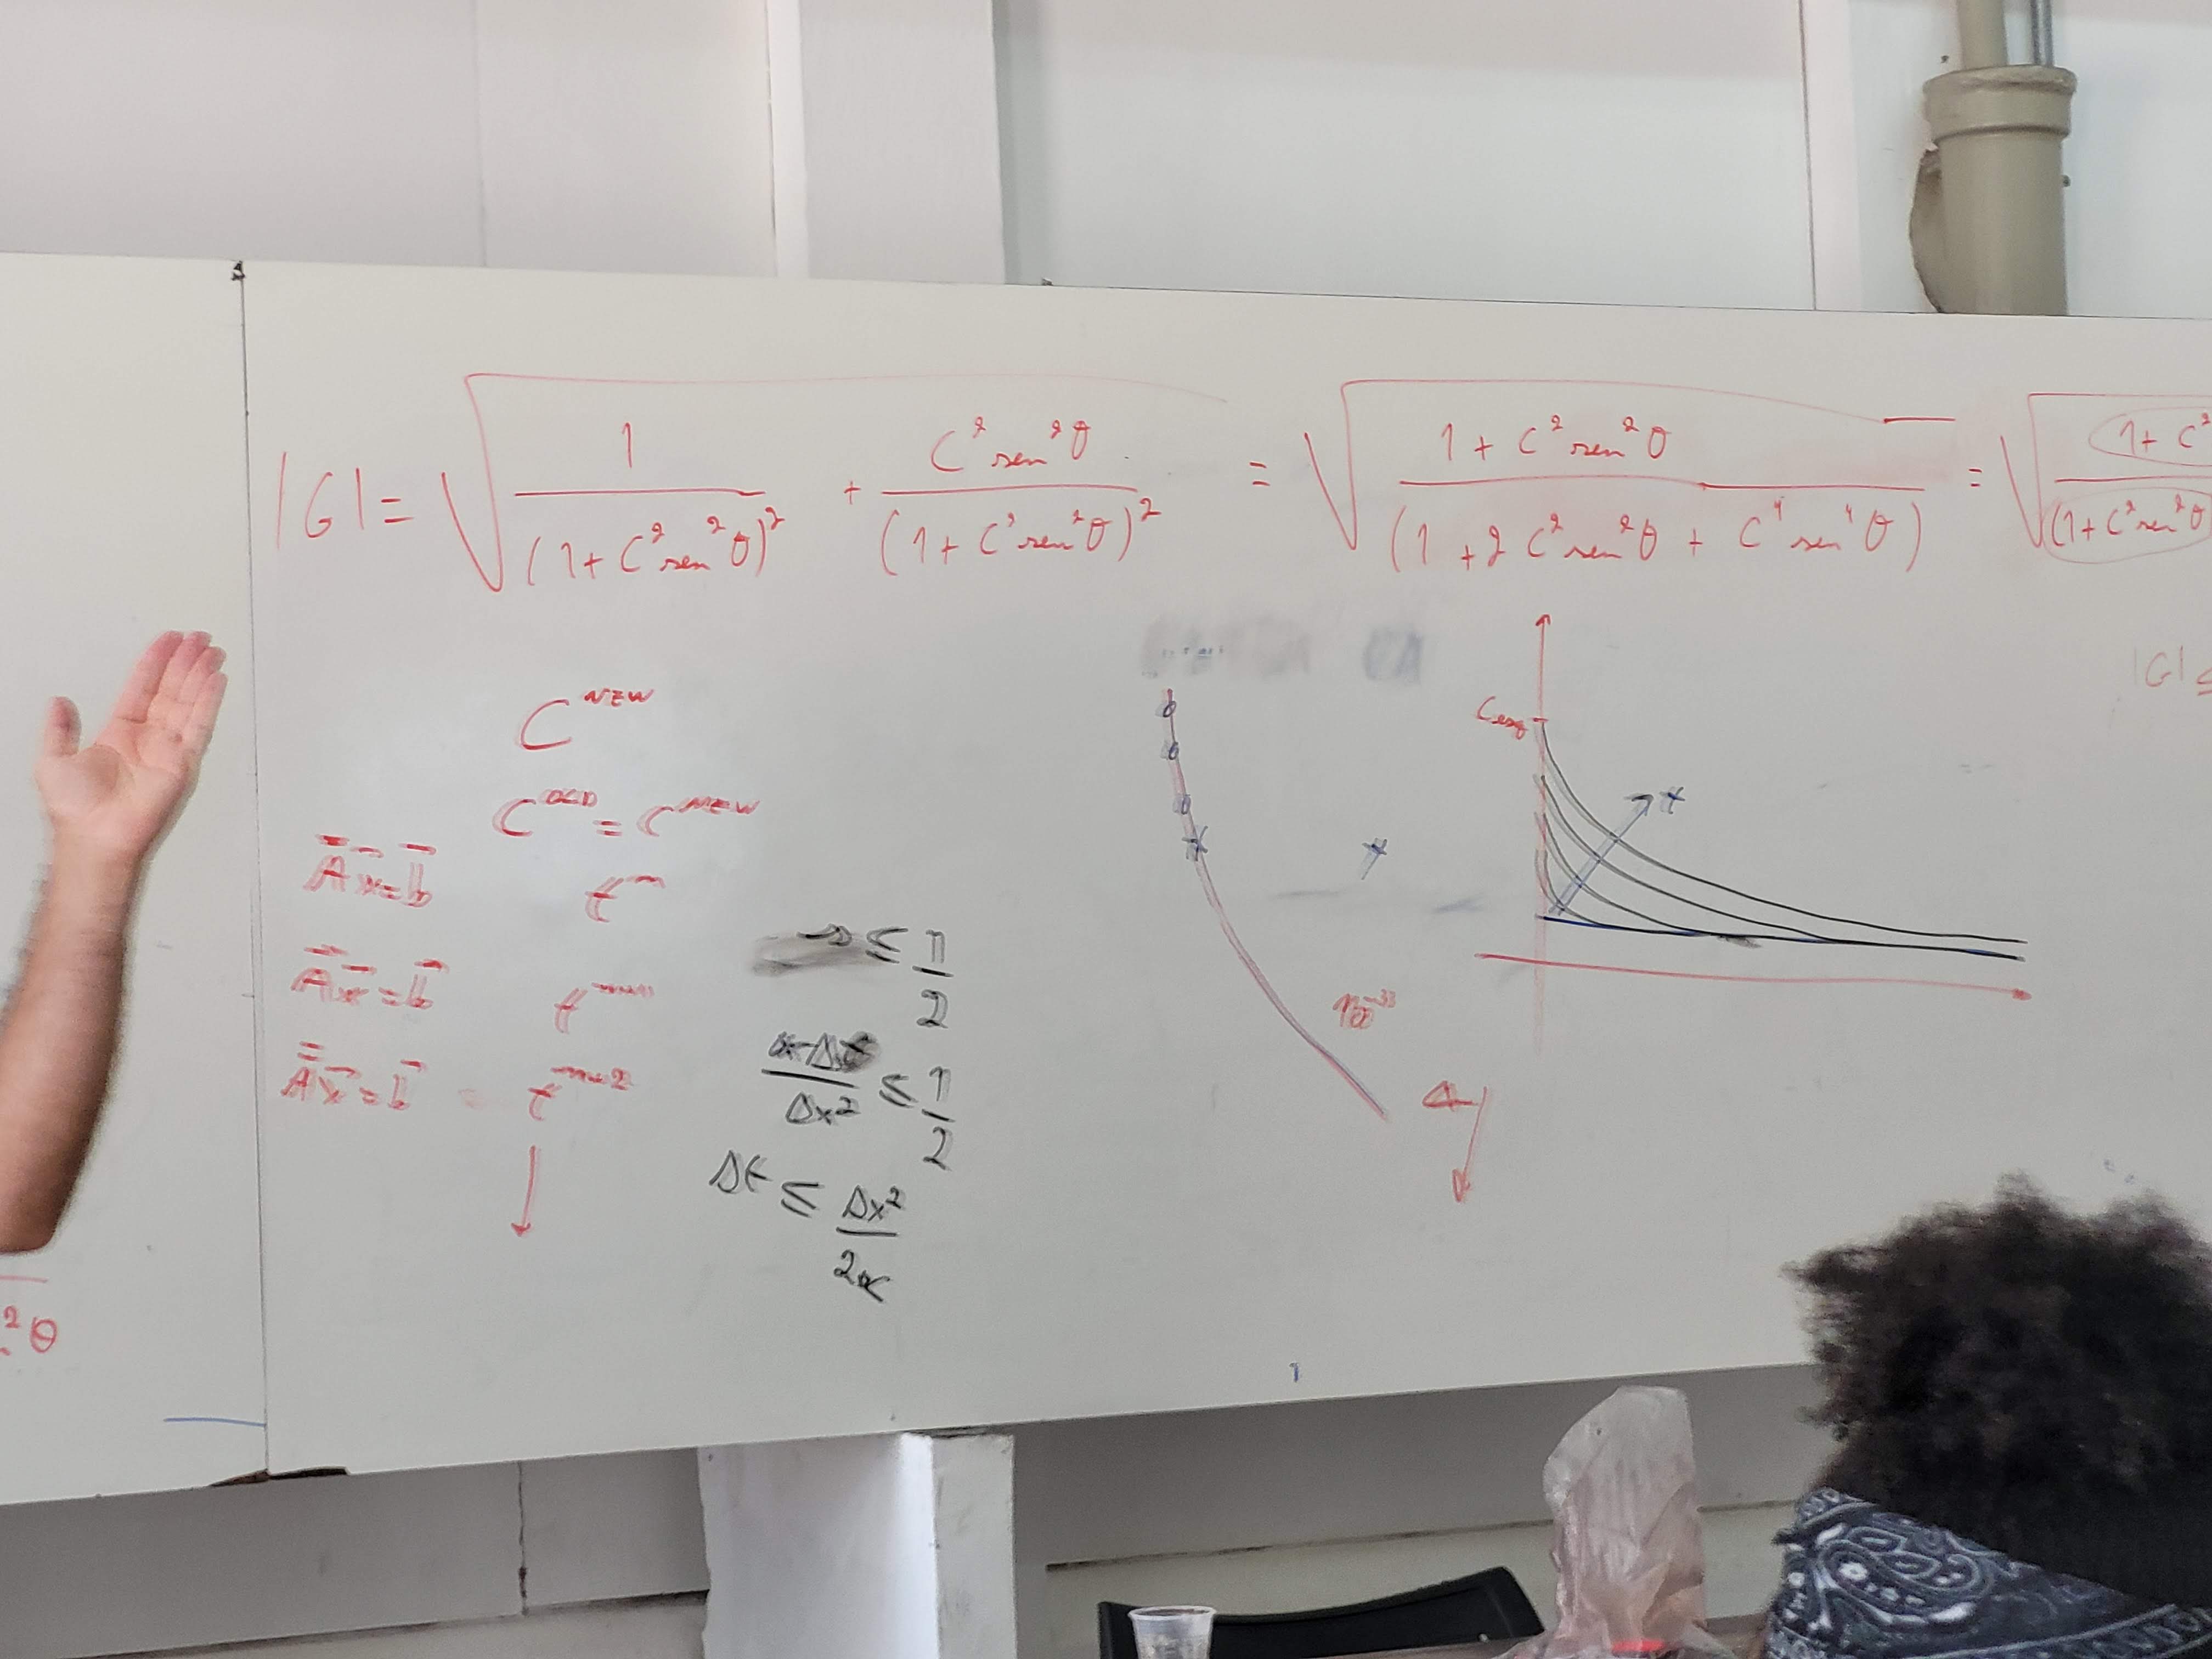 |G| = √( 1/(1 + C² sen²θ)² + C² sen²θ/(1 + C² sen²θ)² ) = √( (1 + C² sen²θ)/(1 + 2 C² sen²θ + C⁴ sen⁴θ) ) = √( (1 + C²/(1 + C² sen²θ
|G| ≤
C^NEW
C^OLD = C^NEW
A x = b t^n
A x = b t^n+1
A x = b = t^n+2
≤ 1/2
α Δt/Δx² ≤ 1/2
Δt ≤ Δx²/2α
C esq
t
²θ
1